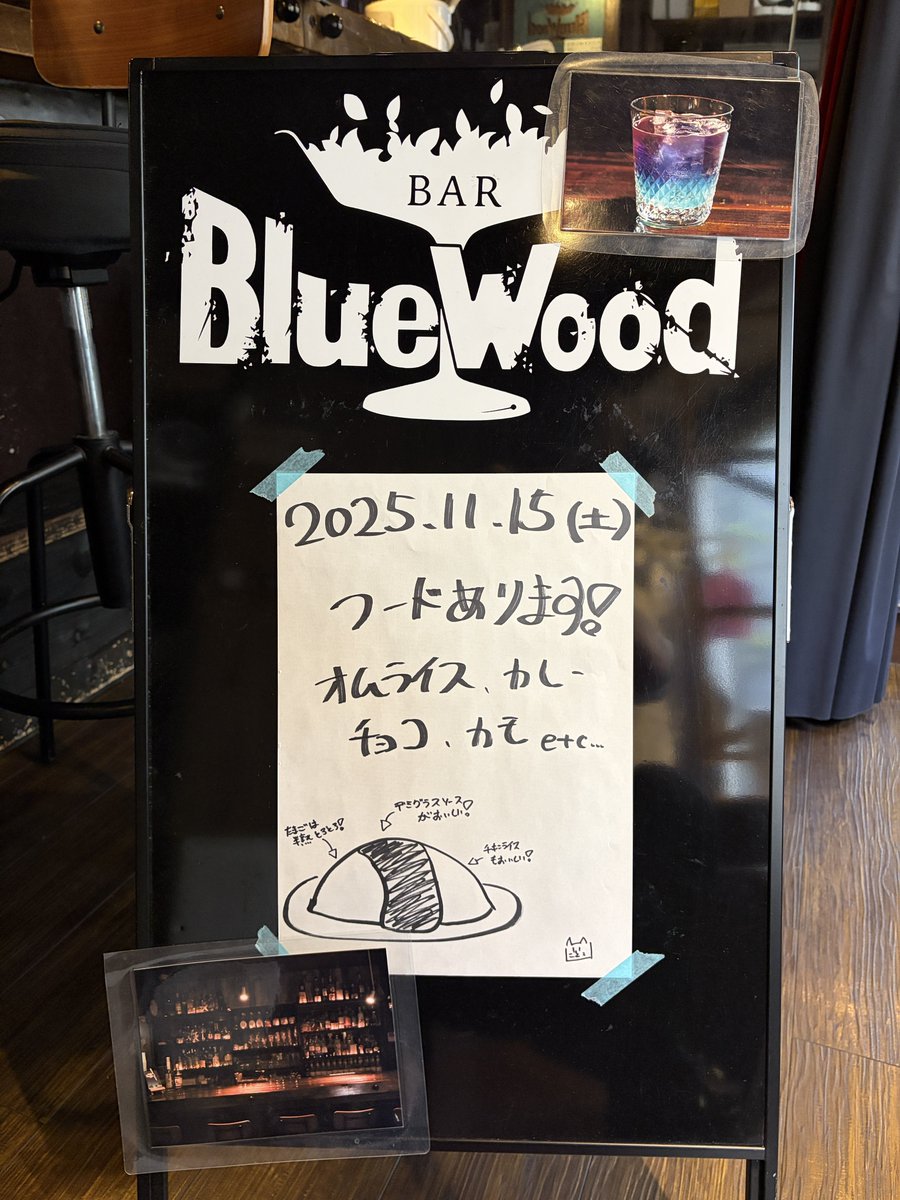 BAR
BlueWood
2025.11.15(土)
フードあります!
オムライス、カレー
チョコ、カモ etc...
デミグラスソース
がおいしい!
たまごは
半熟とろとろ!
チキンライス
もおいしい!